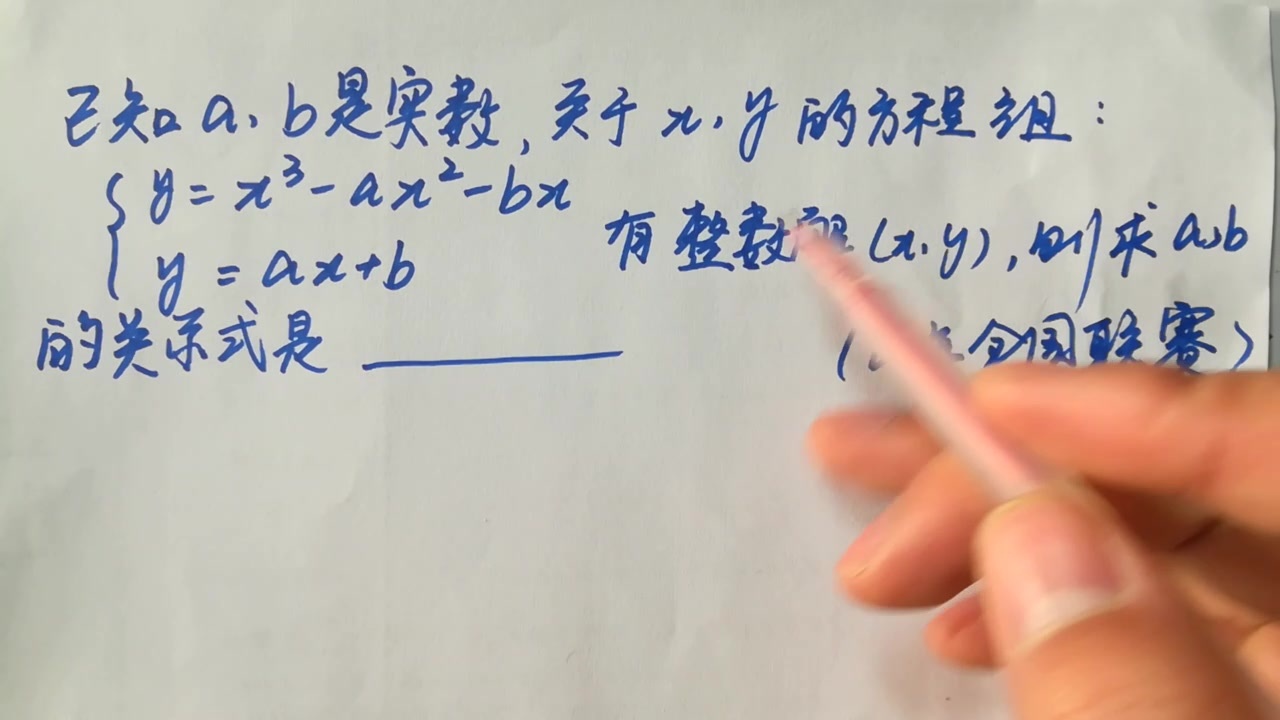 已知a、b是实数,关于x,y的方程组:
y=x³-ax²-bx
y=ax+b
有整数解(x,y),则求a,b
的关系式是
全国联赛)